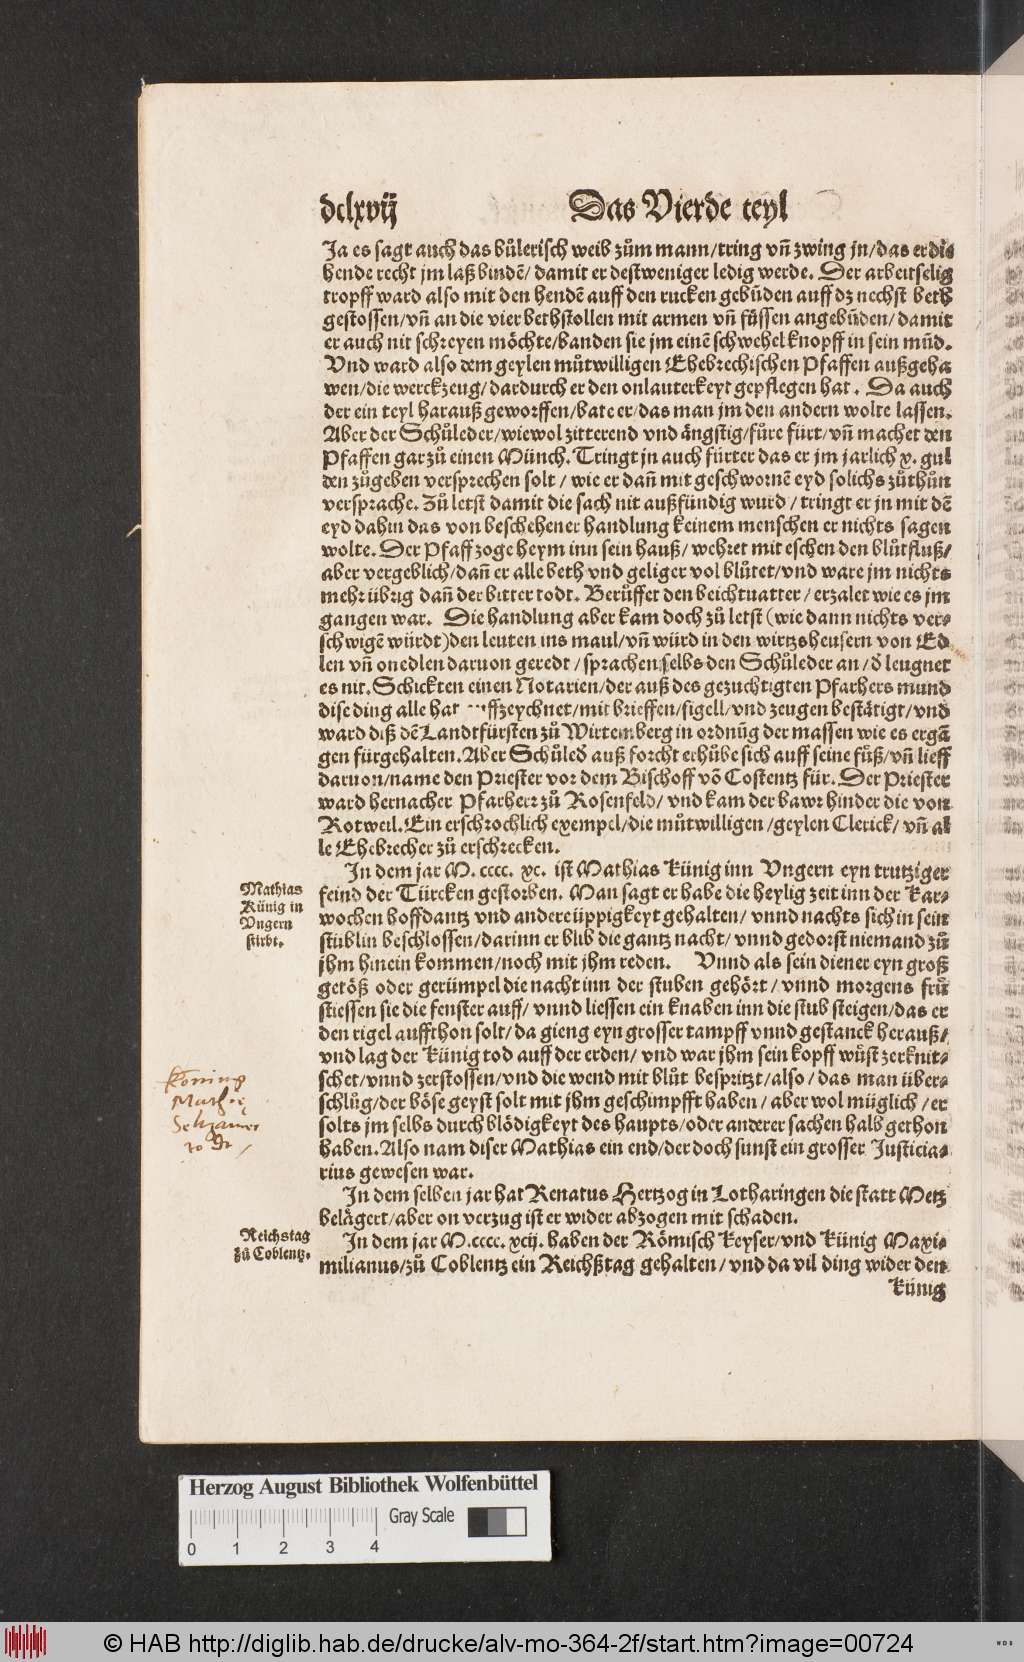 dclxvij Das Vierde teyl
Ja es sagt auch das bůlerisch weib zům mann/tring vñ zwing jn/das er die
hende recht jm laß bindē/damit er destweniger ledig werde. Der arbeitselig
tropff ward also mit den hendē auff den rucken gebūden auff dz nechst beth
gestossen/vñ an die vier bethstollen mit armen vñ füssen angebūden/damit
er auch nit schreyen möchte/banden sie jm einē schwehel knopff in sein mūd.
Vnd ward also dem geylen můtwilligen Ehebrechischen Pfaffen außgeha
wen/die werckzeug/dardurch er den onlauterkeyt gepflegen hat. Da auch
der ein teyl harauß geworffen/bate er/das man jm den andern wolte lassen.
Aber der Schůleder/wiewol zitterend vnd ängstig/fůre fürt/vñ machet den
Pfaffen gar zů einen Münch. Tringt jn auch fürter das er jm jarlich x. gul
den zůgeben versprechen solt/wie er dañ mit geschwornē eyd solichs zůthůn
versprache. Zů letst damit die sach nit außfündig wurd/tringt er jn mit dē
eyd dahin das von beschehener handlung keinem menschen er nichts sagen
wolte. Der Pfaff zoge heym inn sein hauß/wehret mit eschen den blůtfluß/
aber vergeblich/dañ er alle beth vnd geliger vol blůtet/vnd ware jm nichts
mehr übrig dañ der bitter todt. Berůffet den beichtuatter/erzalet wie es jm
gangen war. Die handlung aber kam doch zů letst (wie dann nichts ver-
schwigē würdt) den leuten ins maul/vñ würd in den wirtzsheusern von Ed
len vñ onedlen daruon geredt/sprachen selbs den Schůleder an/d̄ leugnet
es nit. Schickten einen Notarien/der auß des gezuchtigten Pfarhers mund
dise ding alle hat uffzeychnet/mit brieffen/sigell/vnd zeugen bestätigt/vnd
ward diß dē Landtfürsten zů Wirtemberg in ordnūg der massen wie es ergā
gen fürgehalten. Aber Schůled̄ auß forcht erhůbe sich auff seine fůß/vñ lieff
daruon/name den Priester vor dem Bischoff vō Costentz für. Der Priester
ward hernacher Pfarherr zů Rosenfeld/vnd kam der bawr hinder die von
Rotweil. Ein erschrochlich exempel/die můtwilligen/geylen Clerick/vñ al
le Ehebrecher zů erschrecken.
In dem jar M. cccc. xc. ist Mathias Künig inn Vngern eyn trutziger
feind der Türcken gestorben. Man sagt er habe die heylig zeit inn der Kar-
wochen hoffdantz vnd andere üppigkeyt gehalten/vnnd nachts sich in sein
stüblin beschlossen/darinn er blib die gantz nacht/vnnd gedorst niemand zů
jhm hinein kommen/noch mit jhm reden. Vnnd als sein diener eyn groß
getöß oder gerümpel die nacht inn der stuben gehört/vnnd morgens frů
stiessen sie die fenster auff/vnnd liessen ein knaben inn die stub steigen/das er
den rigel auffthon solt/da gieng eyn grosser tampff vnnd gestanck herauß/
vnd lag der Künig tod auff der erden/vnd war jhm sein kopff wüst zerknit-
schet/vnnd zerstossen/vnd die wend mit blůt bespritzt/also/das man über-
schlůg/der böse geyst solt mit jhm geschimpfft haben/aber wol müglich/er
solts jm selbs durch blödigkeyt des haupts/oder anderer sachen halb gethon
haben. Also nam diser Mathias ein end/der doch sunst ein grosser Justicia-
rius gewesen war.
In dem selben jar hat Renatus Hertzog in Lotharingen die statt Metz
belägert/aber on verzug ist er wider abzogen mit schaden.
In dem jar M.cccc. xcij. haben der Römisch Keyser/vnd Künig Maxi-
milianus/zů Coblentz ein Reichßtag gehalten/vnd da vil ding wider den
Künig
Mathias
Künig in
Vngern
stirbt.
Koning
Reichstag
zů Coblentz.
Herzog August Bibliothek Wolfenbüttel
Gray Scale
0 1 2 3 4
© HAB http://diglib.hab.de/drucke/alv-mo-364-2f/start.htm?image=00724